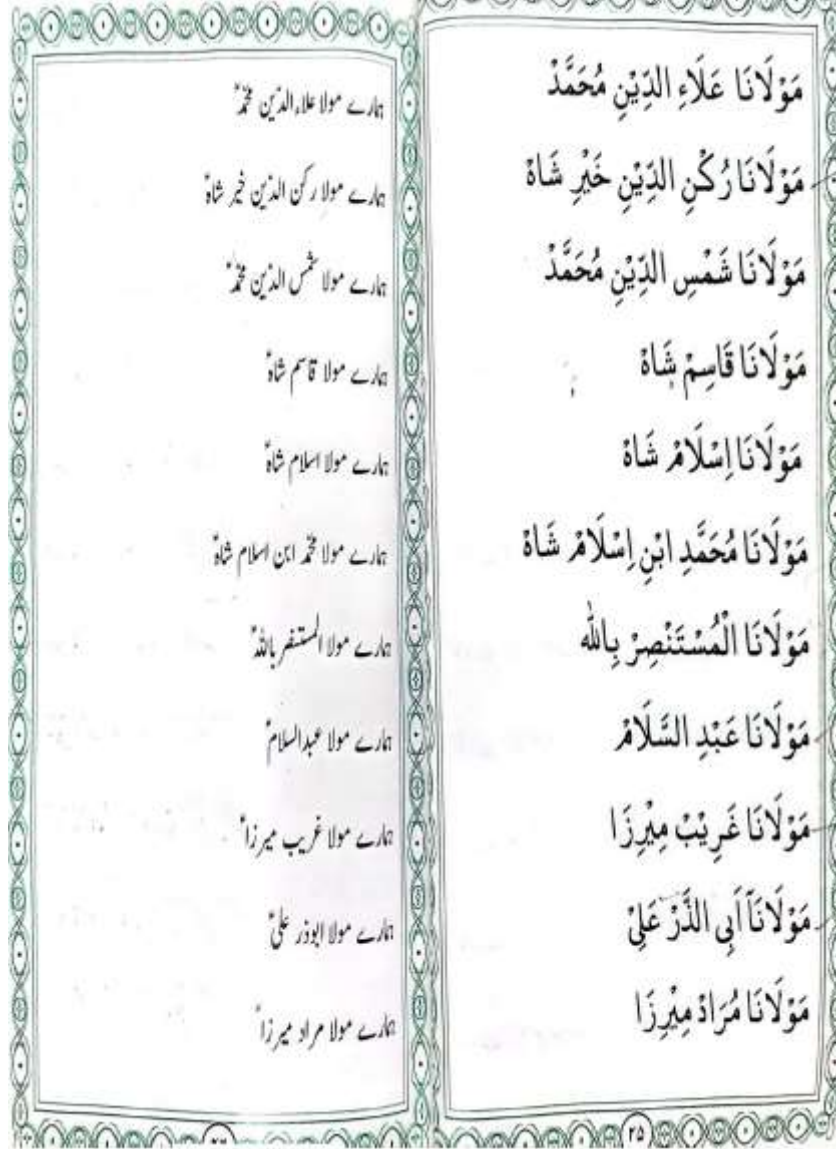 مَوْلَانَا عَلَاءِ الدِّيْنِ مُحَمَّدْ
مَوْلَانَا رُكْنِ الدِّيْنِ خَيْرِ شَاهْ
مَوْلَانَا شَمْسِ الدِّيْنِ مُحَمَّدْ
مَوْلَانَا قَاسِمْ شَاهْ
مَوْلَانَا اِسْلَامْ شَاهْ
مَوْلَانَا مُحَمَّدِ ابْنِ اِسْلَامْ شَاهْ
مَوْلَانَا الْمُسْتَنْصِرْ بِالله
مَوْلَانَا عَبْدِ السَّلَامْ
مَوْلَانَا غَرِيْبْ مِيْرِزَا
مَوْلَانَآ اَبِى الذَّرْ عَلِىْ
مَوْلَانَا مُرَادْ مِيْرِزَا
۲۵
ہمارے مولا علاء الدّین محمّدؑ
ہمارے مولا رکن الدّین خیر شاہؑ
ہمارے مولا شمس الدّین محمّدؑ
ہمارے مولا قاسم شاہؑ
ہمارے مولا اسلام شاہؑ
ہمارے مولا محمّد ابن اسلام شاہؑ
ہمارے مولا المستنصر باللہؑ
ہمارے مولا عبدالسلامؑ
ہمارے مولا غریب میرزاؑ
ہمارے مولا ابوذر علیؑ
ہمارے مولا مراد میرزاؑ